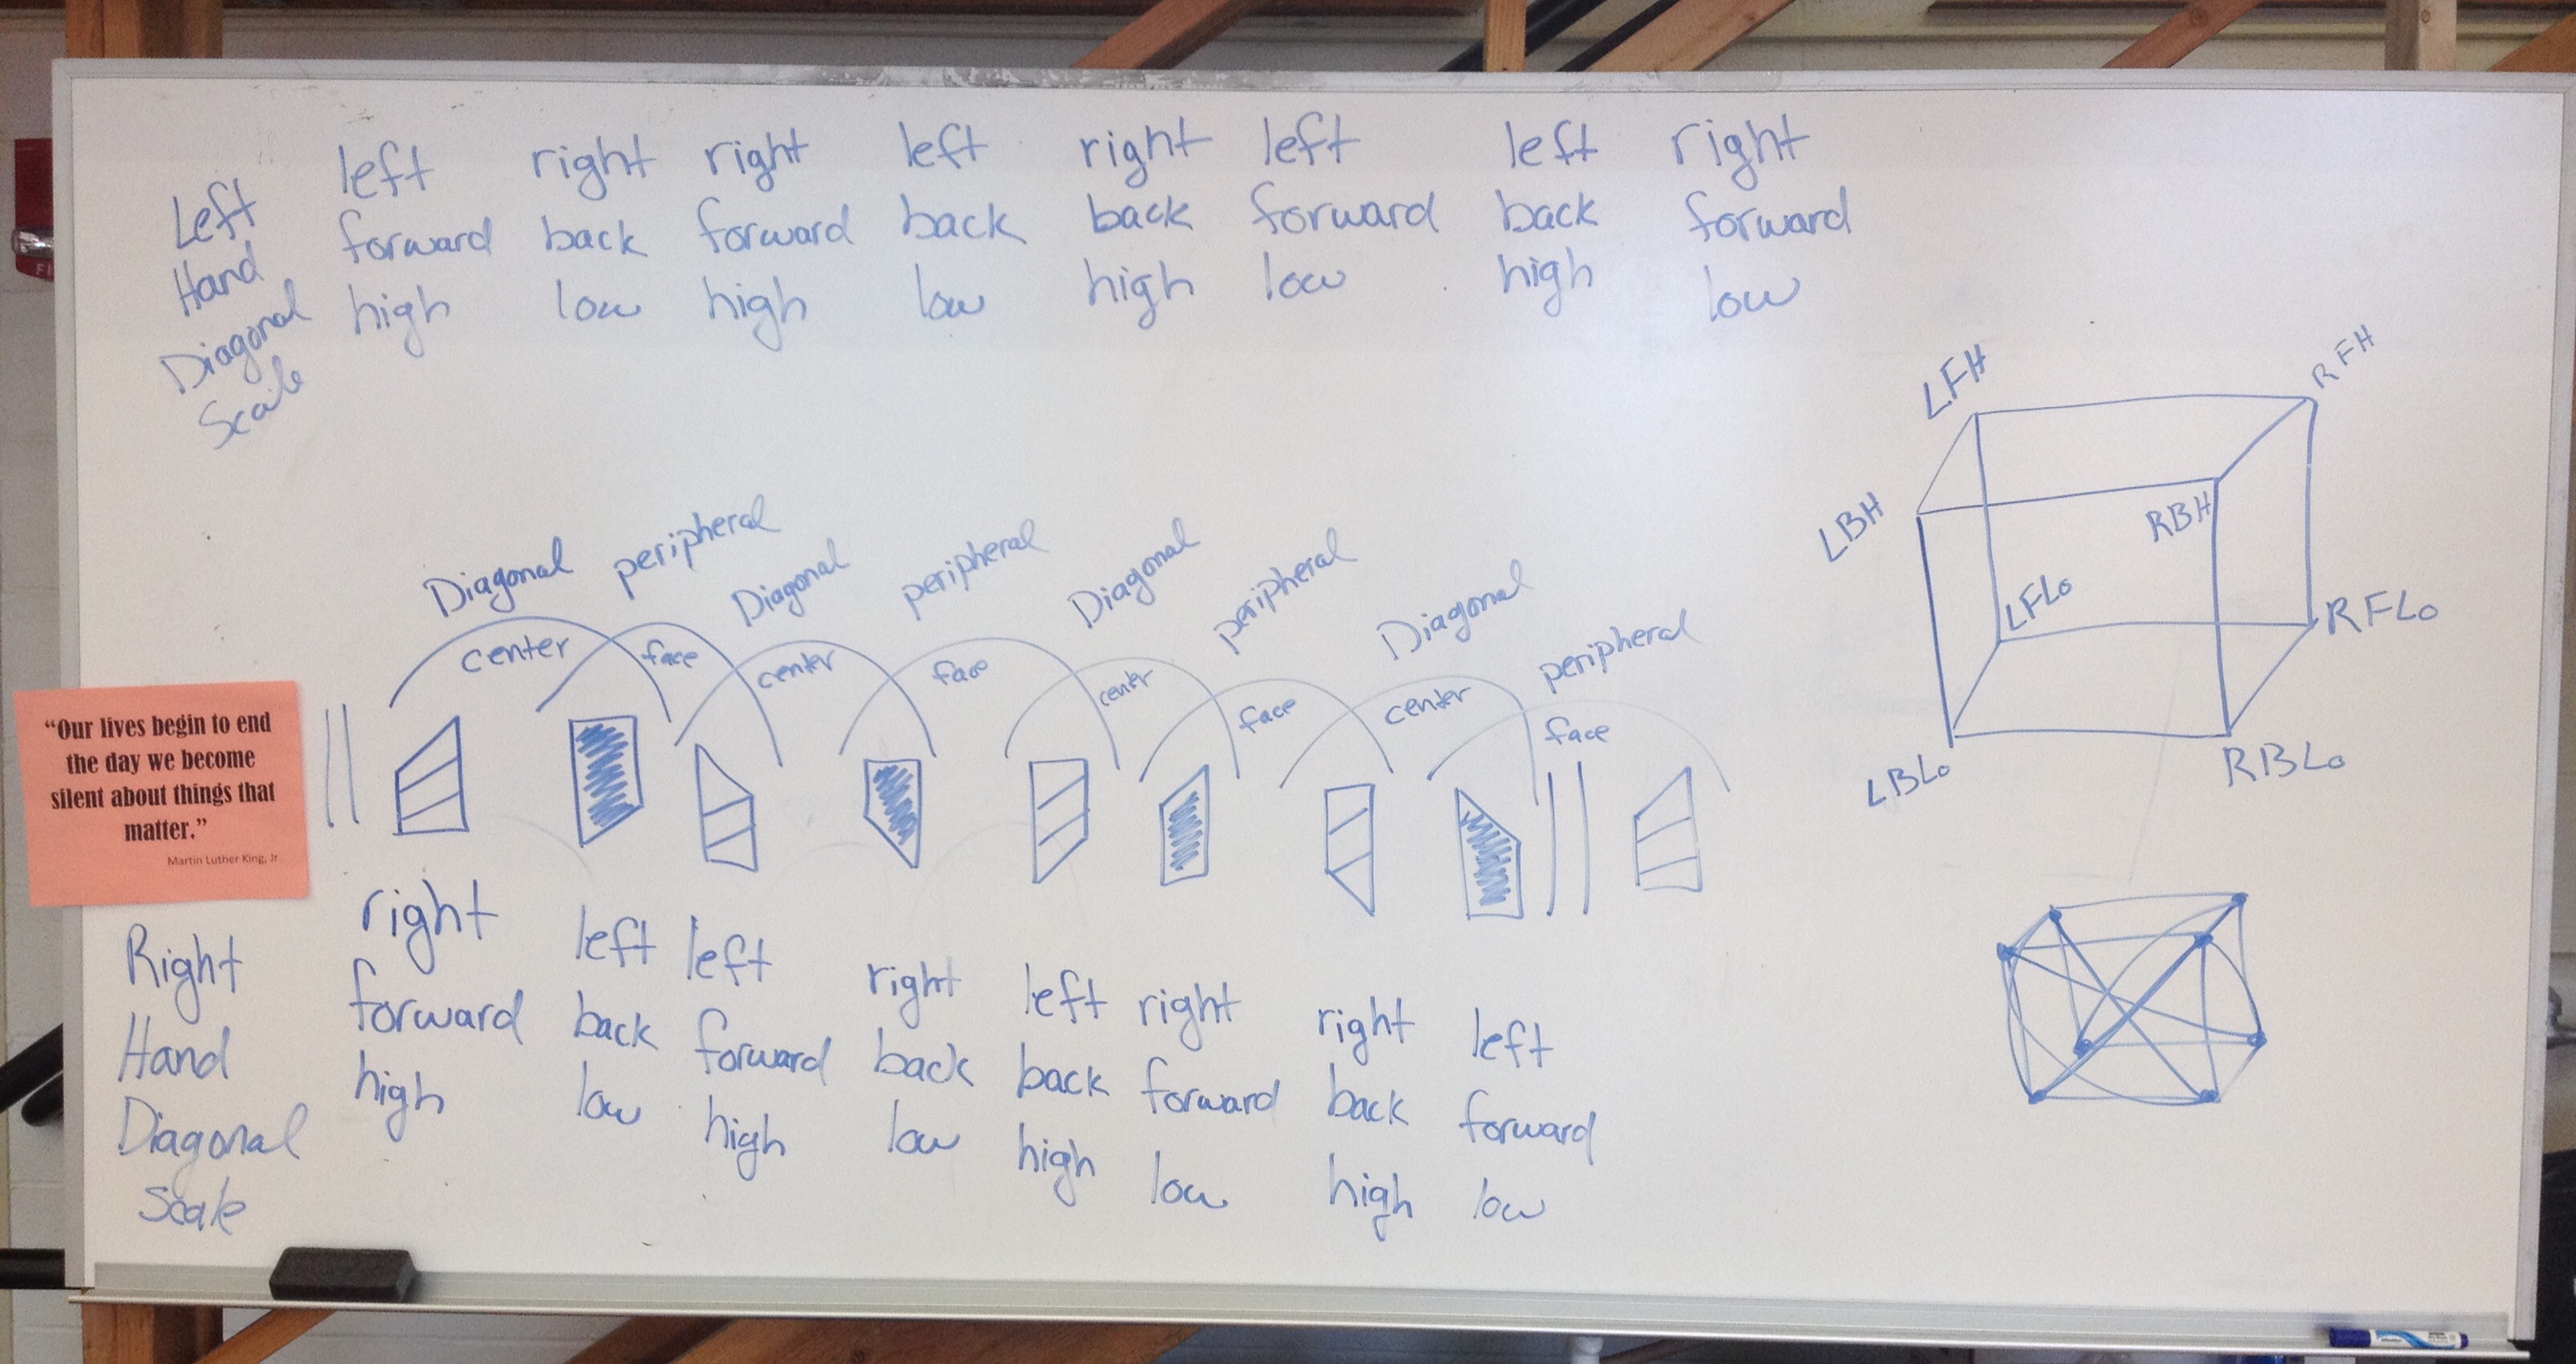 Left
Hand
Diagonal
Scale
left right right left right left left right
forward back forward back back forward back forward
high low high low high low high low
Diagonal peripheral Diagonal peripheral Diagonal peripheral Diagonal peripheral
center face center face center face center face
LFH RFH
LBH RBH
LFLo RFLo
LBLo RBLo
“Our lives begin to end
the day we become
silent about things that
matter.”
Martin Luther King, Jr.
Right
Hand
Diagonal
Scale
right left left right left right right left
forward back forward back back forward back forward
high low high low high low high low
FI